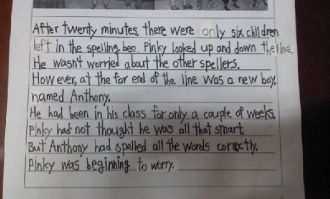 After twenty minutes, there were only six children
left in the spelling bee. Pinky looked up and down the line.
He wasn't worried about the other spellers.
However, at the far end of the line was a new boy,
named Anthony.
He had been in his class for only a couple of weeks.
Pinky had not thought he was all that smart.
But Anthony had spelled all the words correctly.
Pinky was beginning to worry.